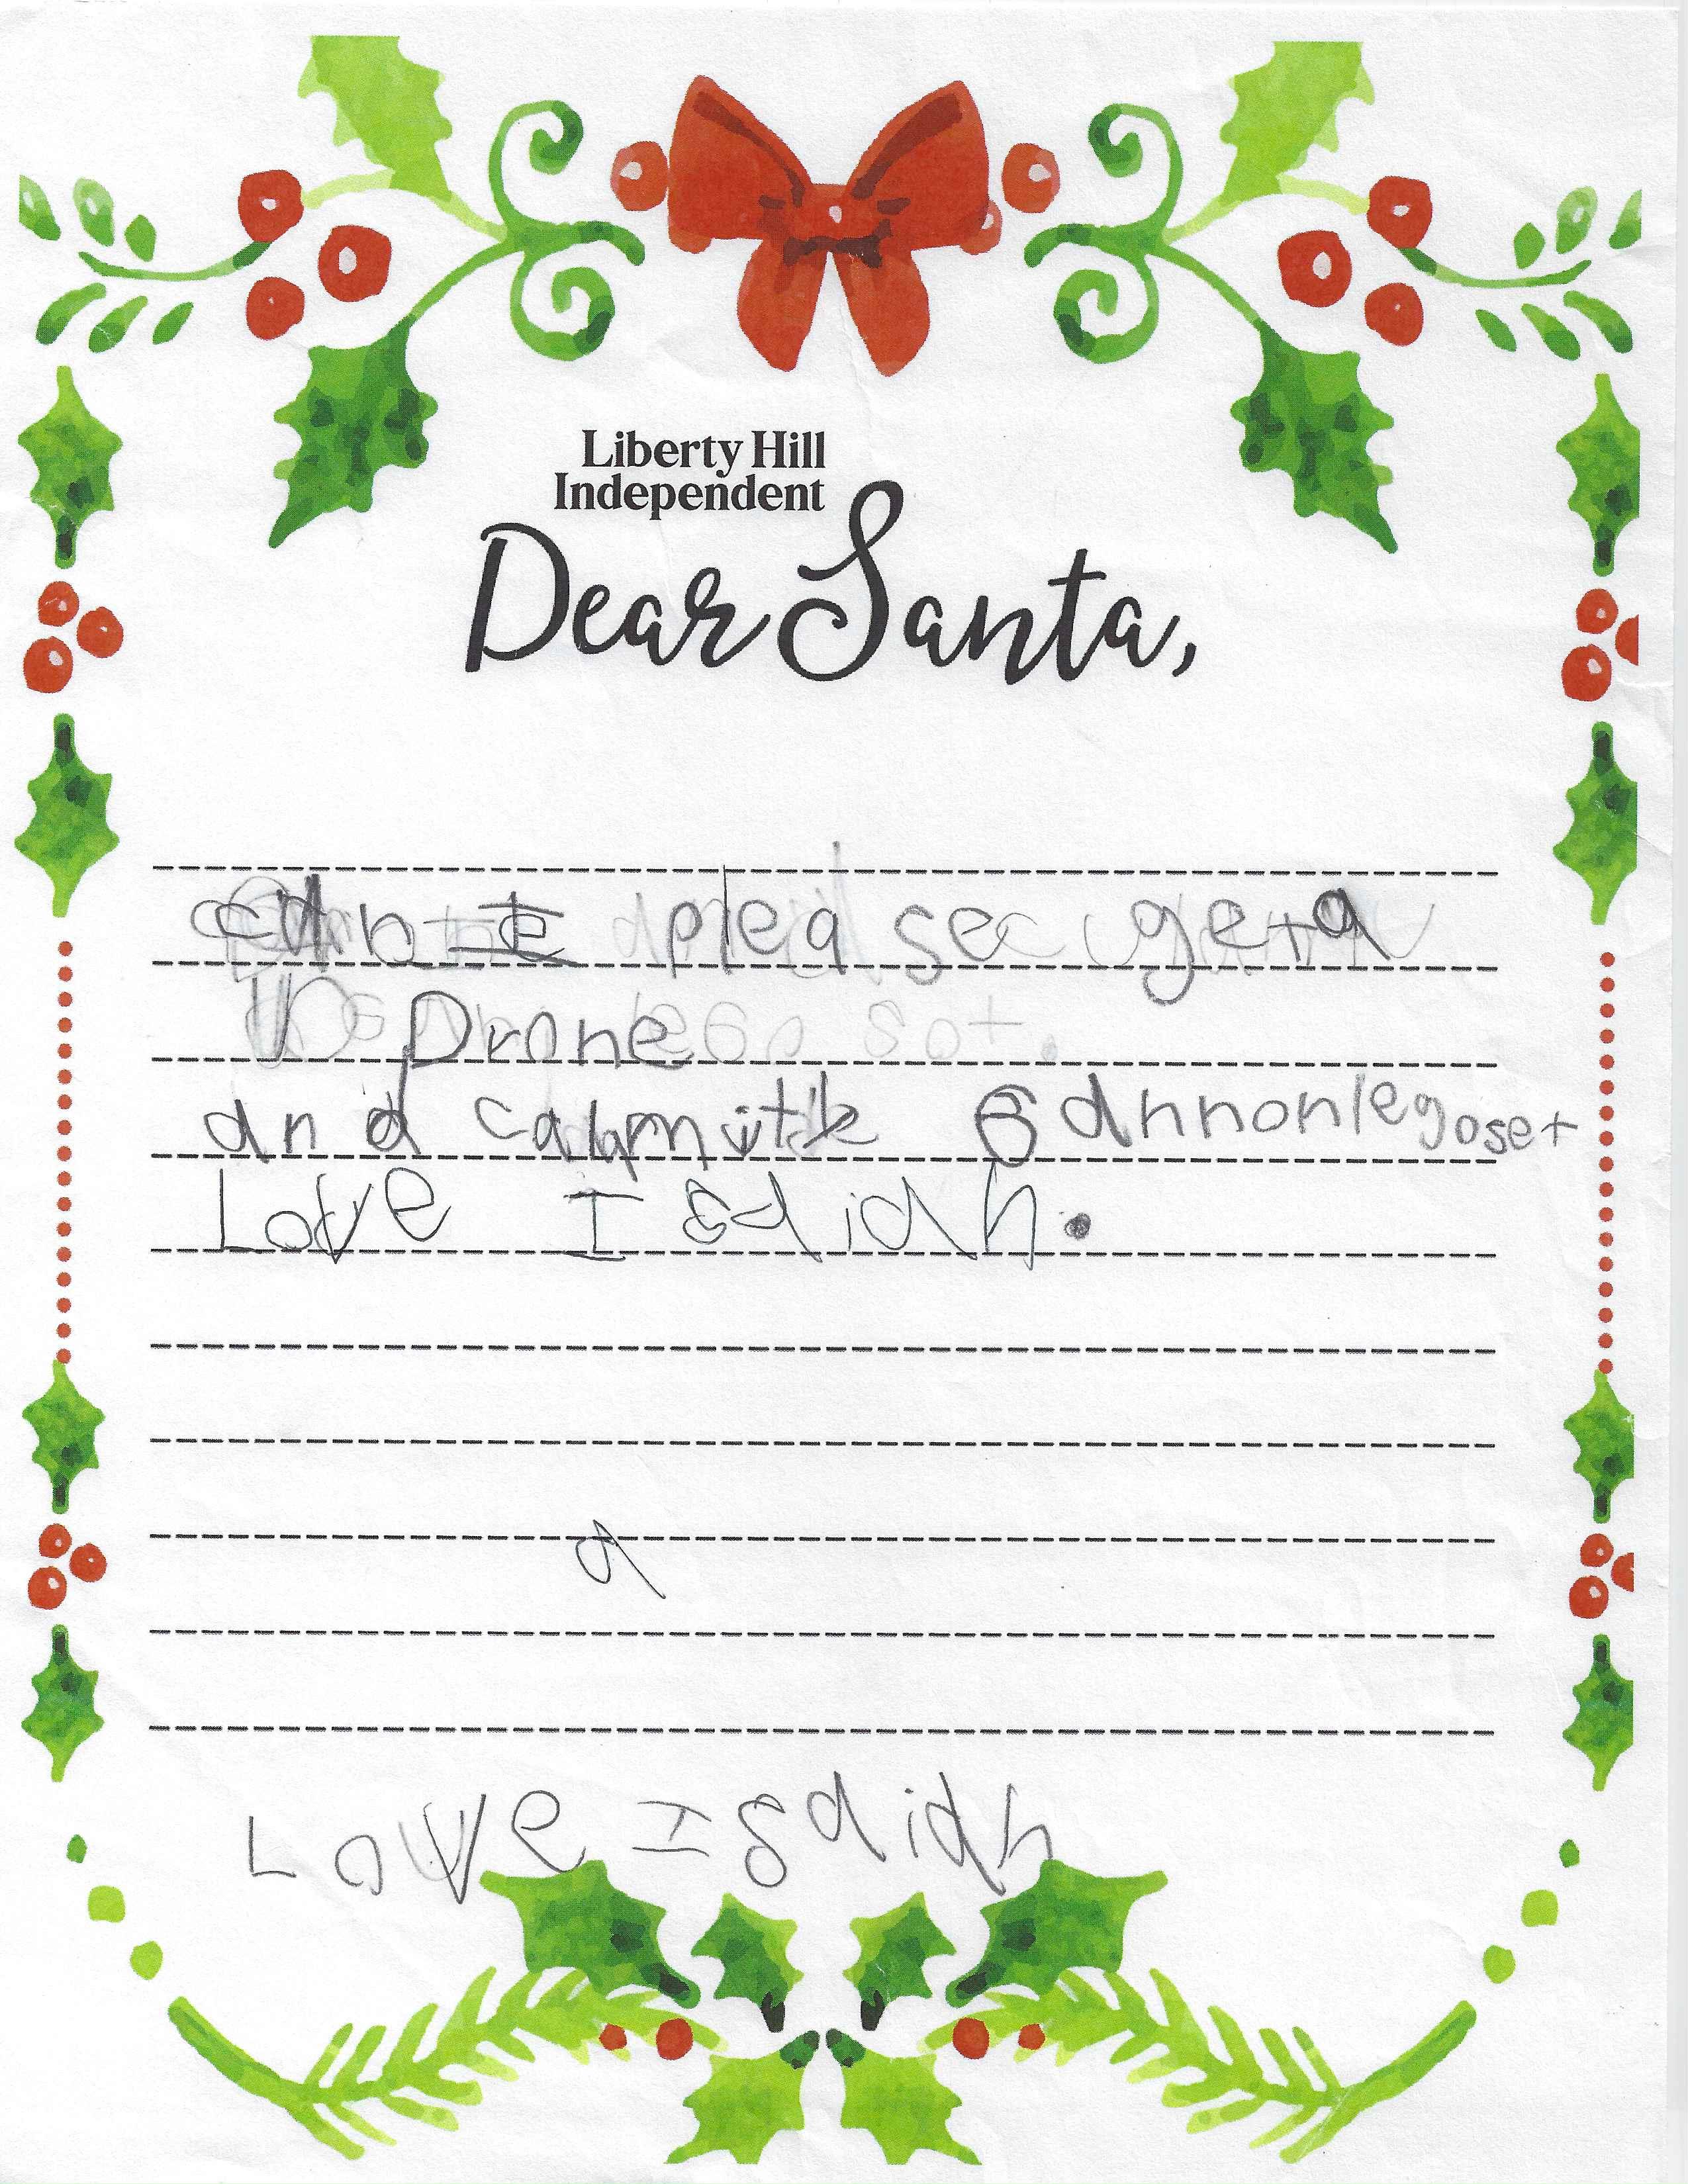 Liberty Hill
Independent
Dear Santa,
can I please get a
Drone
and 6 annonlegoset
Love Isaiah.
a
Love Isaiah